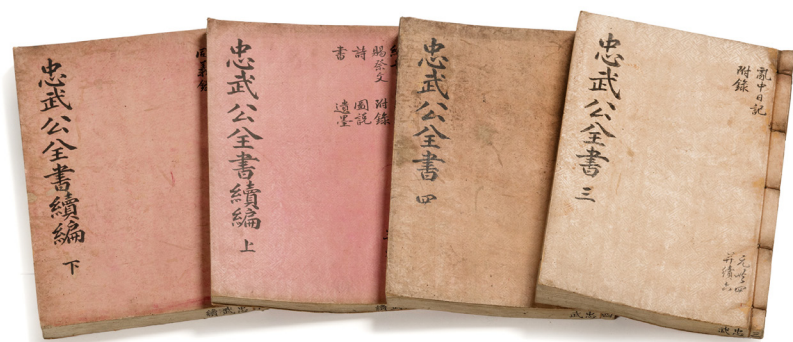 忠武公全書續編 下
忠武公全書續編 上
賜祭文 附錄
詩 圖說
書 遺墨
忠武公全書 四
忠武公全書 三
亂中日記
附錄